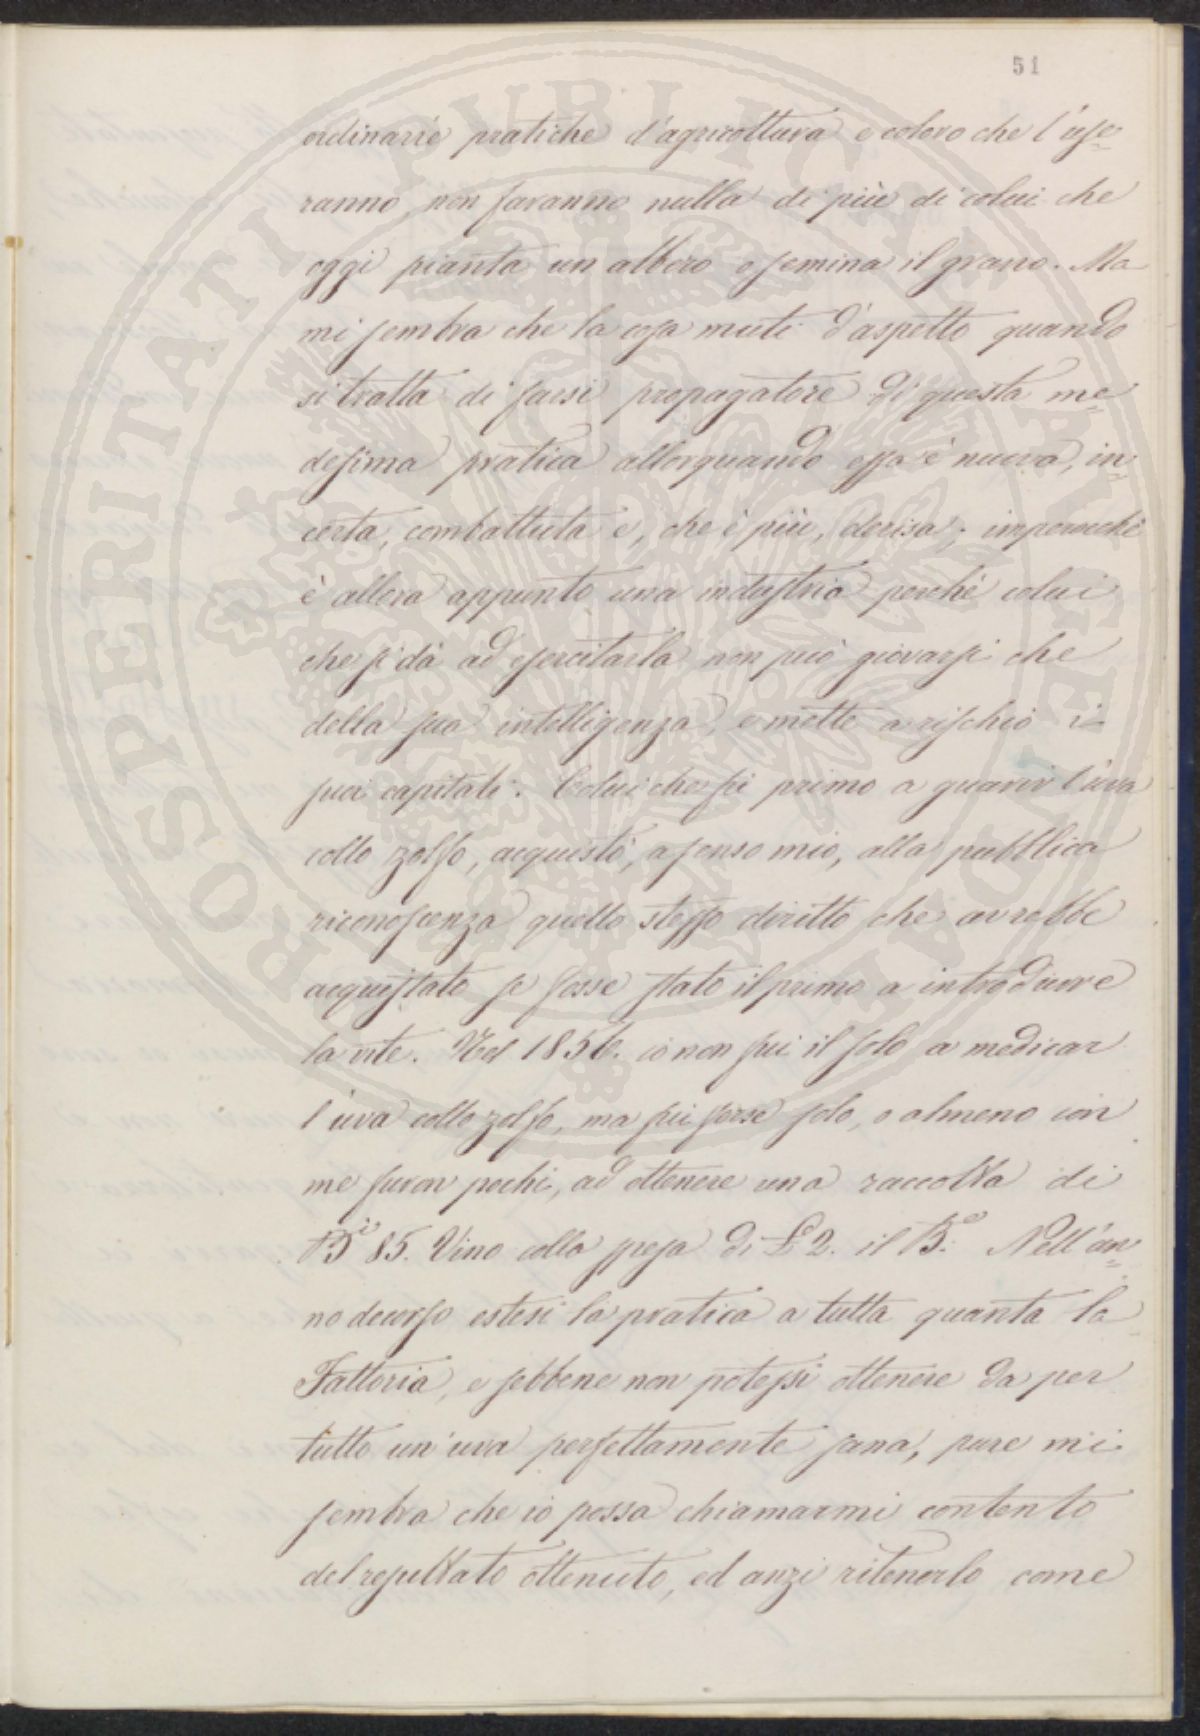 51
ordinarie pratiche d'agricoltura e coloro che l'use-
ranno non faranno nulla di più di colui che
oggi pianta un albero o semina il grano. Ma
mi sembra che la cosa muti d'aspetto quando
si tratta di farsi propagatore di questa me-
desima pratica allorquando essa è nuova, in-
certa, combattuta e, che è più, derisa; imperocchè
è allora appunto una industria perchè colui
che si dà ad esercitarla non può giovarsi che
della sua intelligenza, e mette a rischio i
suoi capitali. Colui che fu primo a guarir l'uva
collo zolfo, acquistò, a senso mio, alla pubblica
riconoscenza quello stesso diritto che avrebbe
acquistato se fosse stato il primo a introdurre
la vite. Nel 1856. io non fui il solo a medicar
l'uva collo zolfo, ma fui forse solo, o almeno con
me furon pochi, ad ottenere una raccolta di
Bi 85. Vino colla spesa di £ 2. il Be. Nell'an-
no decorso estesi la pratica a tutta quanta la
Fattoria, e sebbene non potessi ottenere da per
tutto un'uva perfettamente sana, pure mi
sembra che io possa chiamarmi contento
del resultato ottenuto, ed anzi ritenerlo come
PROSPERITATI PUBLICAE AUGENDAE